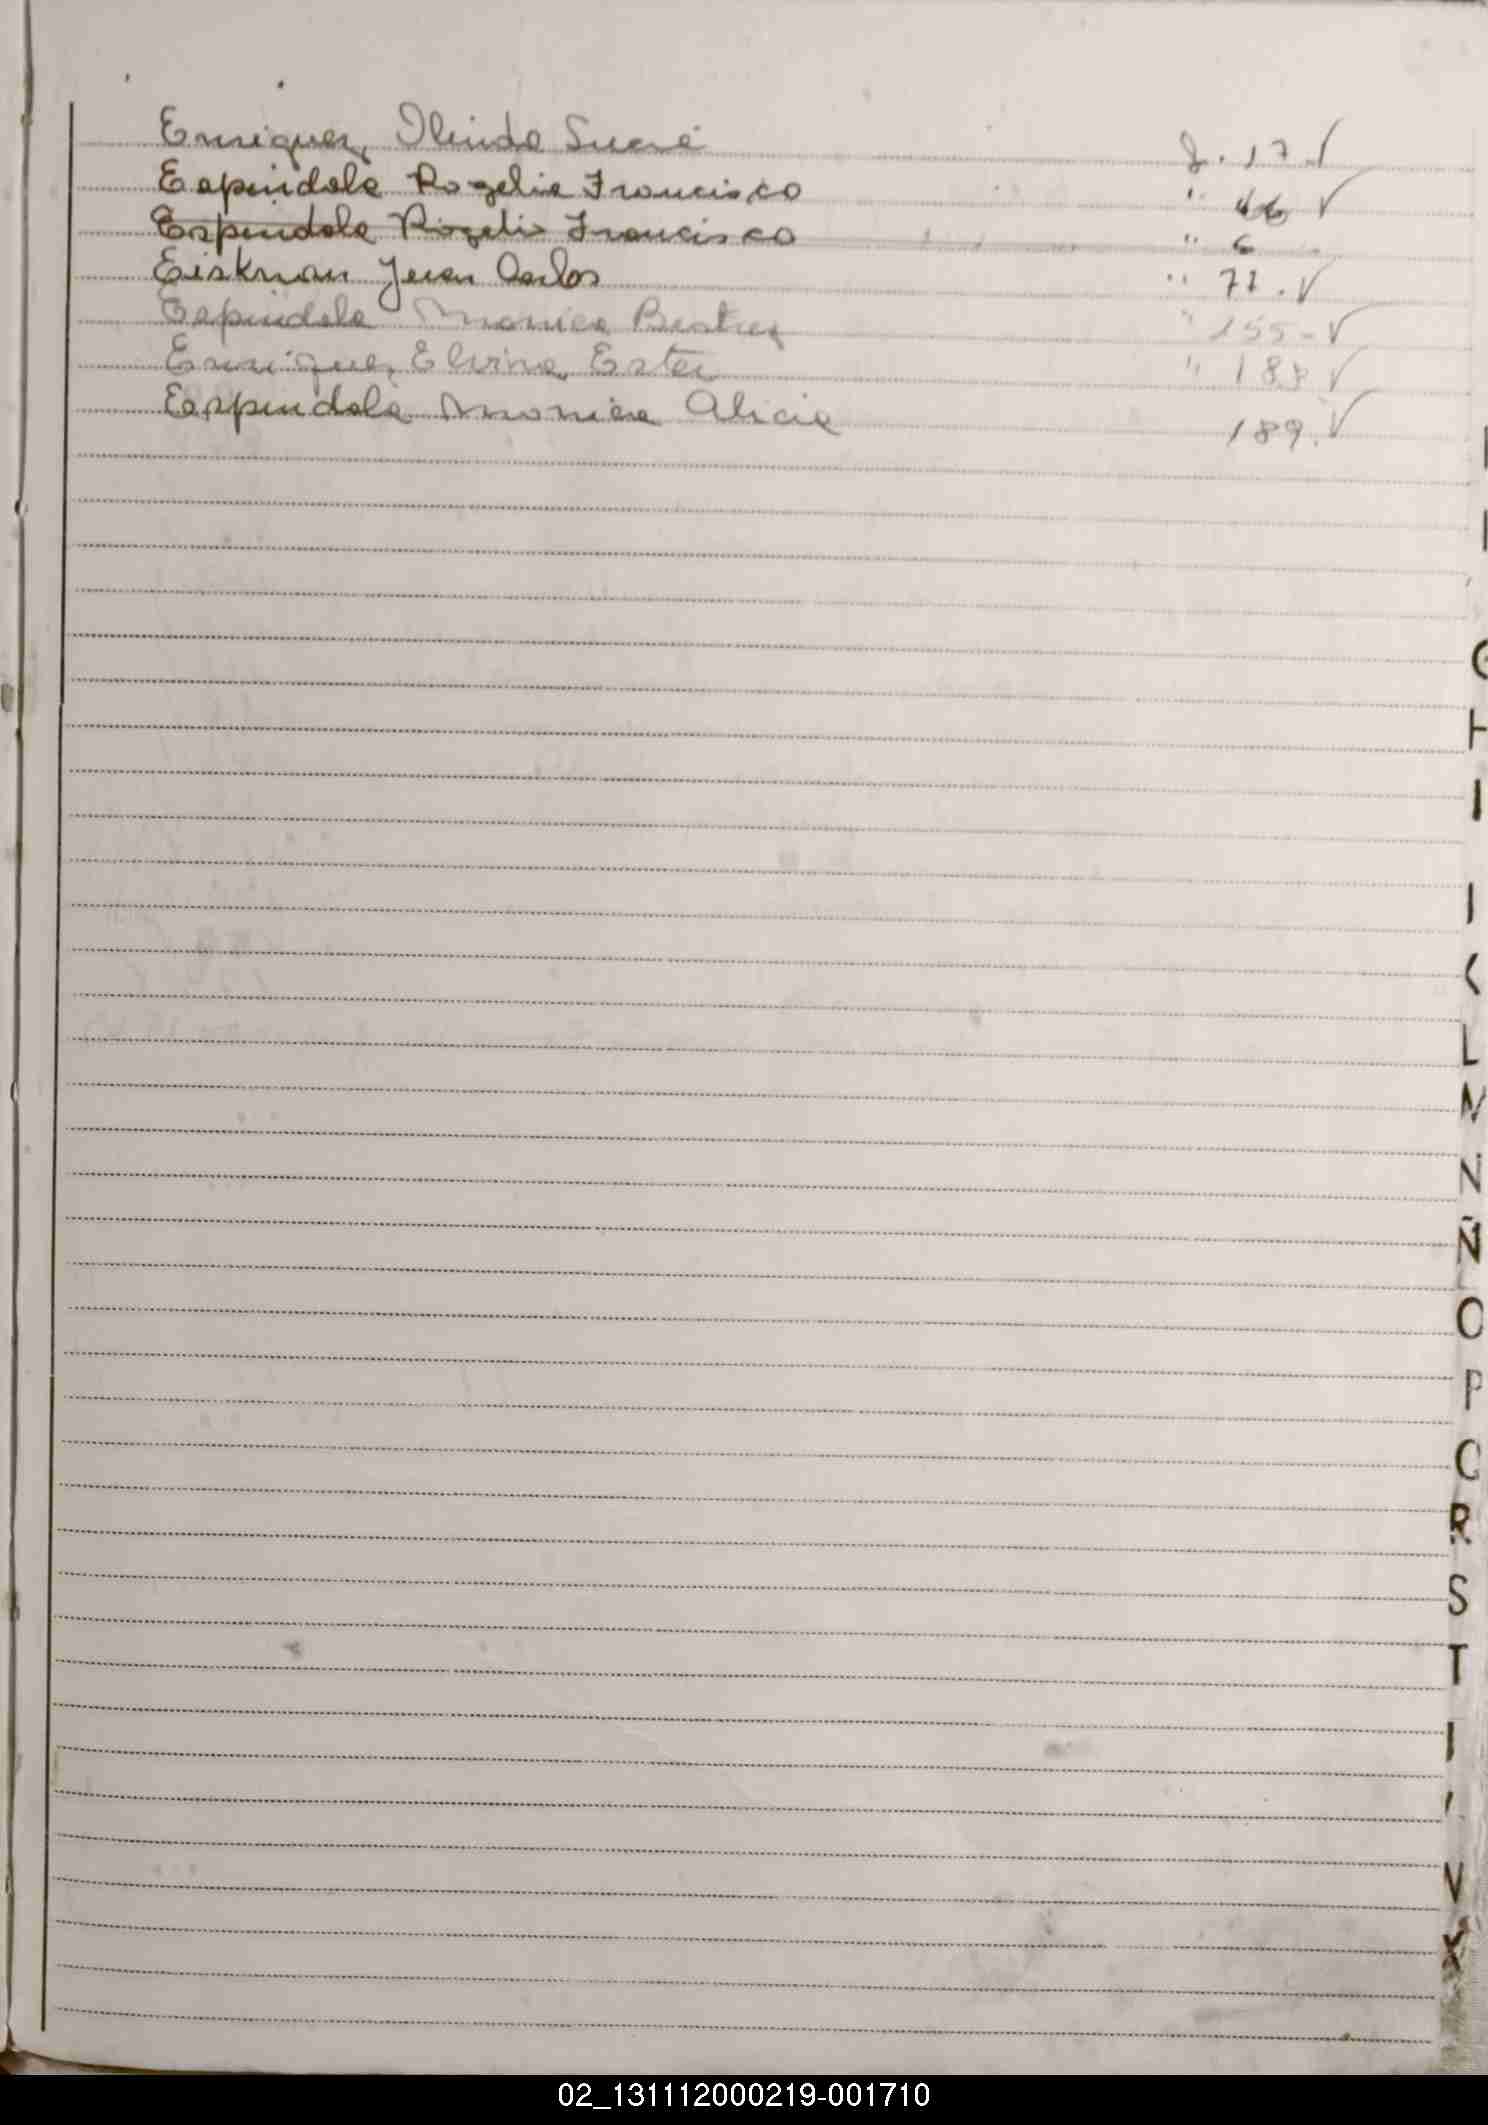 Enriquez, Olinda Sucre f. 17 √
Espindola Rogelio Francisco " 46 √
Espindola Rogelio Francisco " 6
Eiskman Juan Carlos " 77. √
Espindola Monica Beatriz " 155- √
Enrique, Elvira Ester " 188 √
Espindola Monica Alicia 189. √
G
H
I
K
L
M
N
Ñ
O
P
Q
R
S
T
V
X
02_131112000219-001710